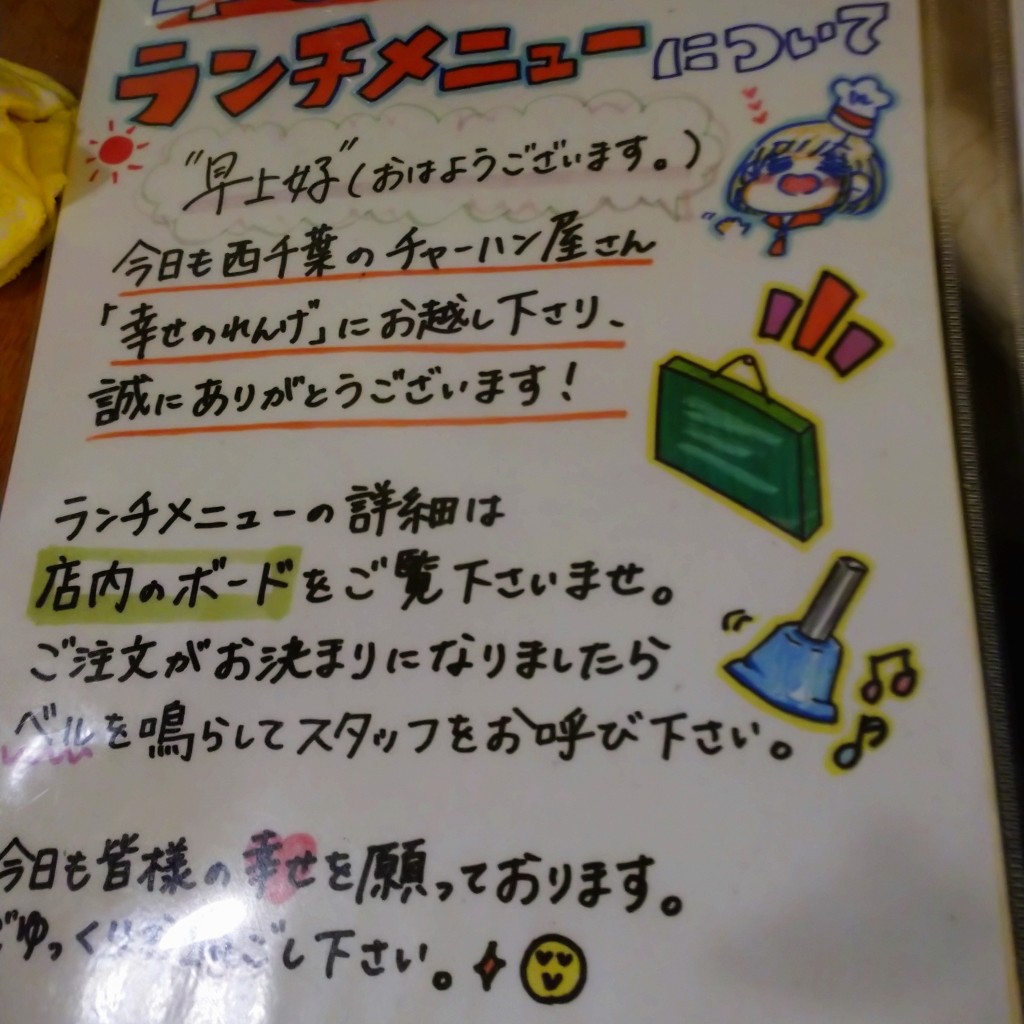 ランチメニューについて
"早上好"(おはようございます。)
今日も西千葉のチャーハン屋さん
「幸せのれんげ」にお越し下さり、
誠にありがとうございます!
ランチメニューの詳細は
店内のボードをご覧下さいませ。
ご注文がお決まりになりましたら
ベルを鳴らしてスタッフをお呼び下さい。
今日も皆様の幸せを願っております。
ごゆっくりお過ごし下さい。